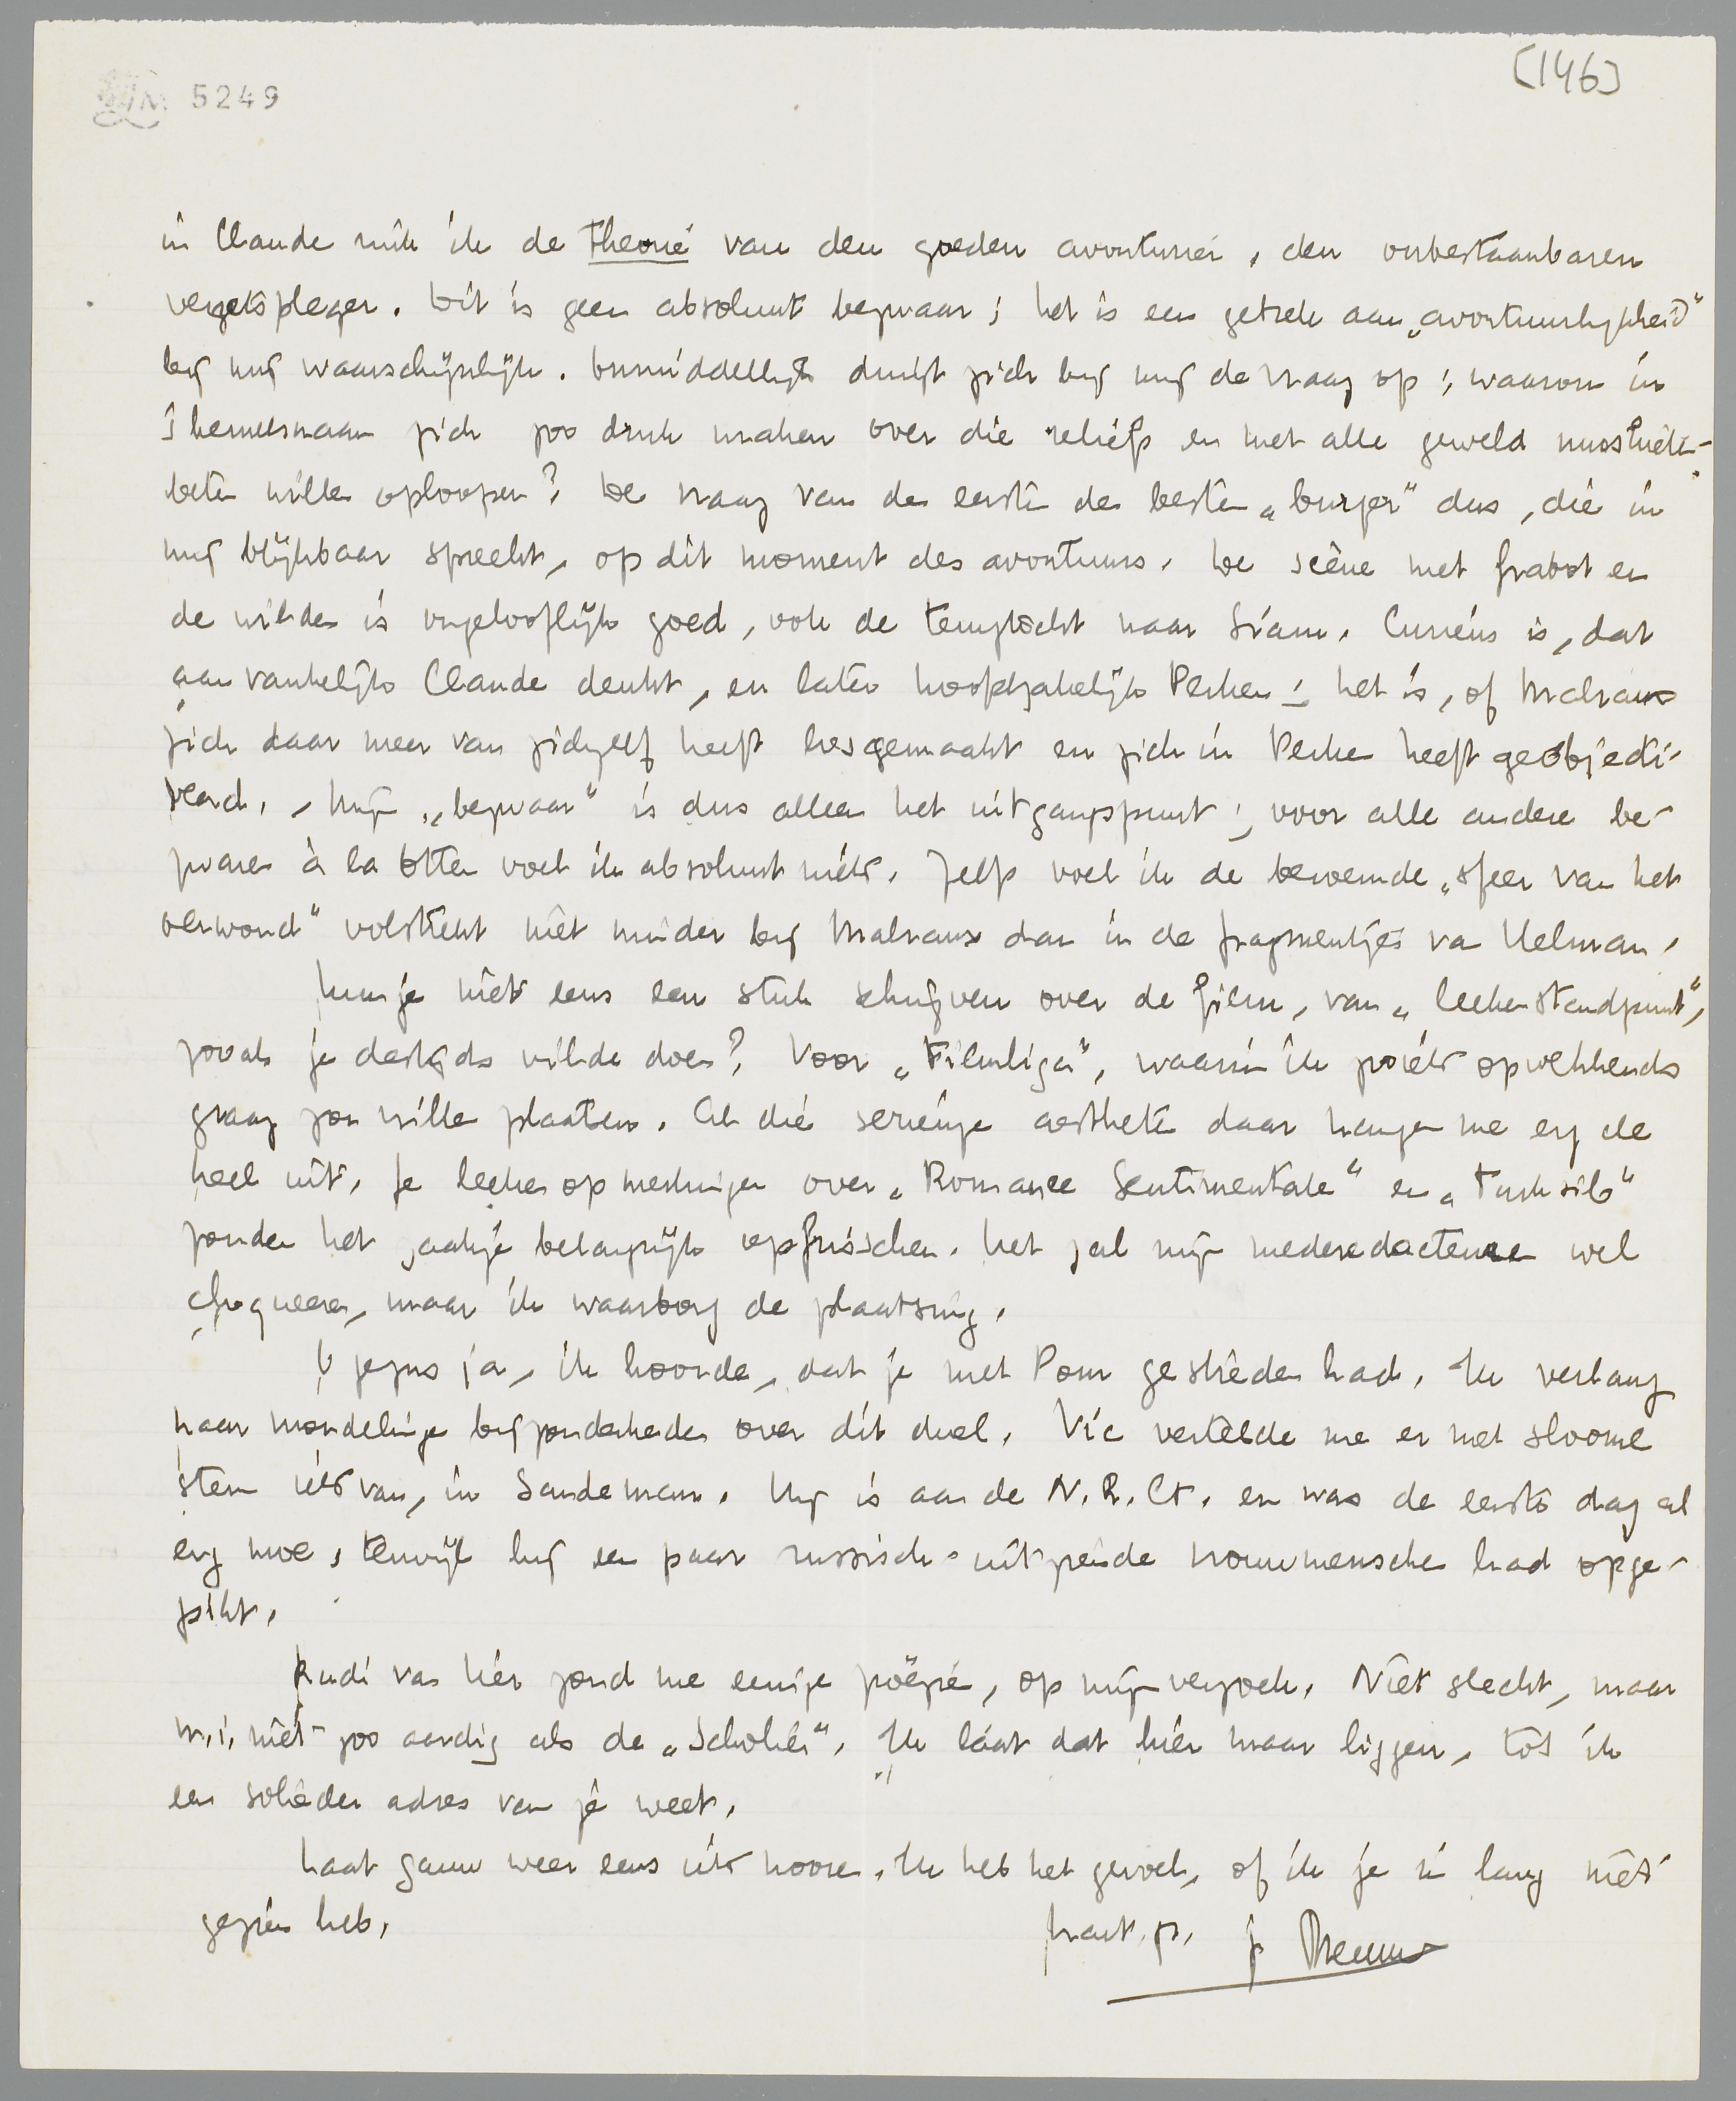 [146]
LM 5249
in Claude ruik ik de theorie van den goeden avonturier, den onbestaanbaren
Dit is geen absoluut bezwaar; het is een gebrek aan „avontuurlijkheid”
bij mij waarschijnlijk. Onmiddellijk dringt zich bij mij de vraag op: waarom in
's hemelsnaam zich zoo druk maken over die reliëfs en met alle geweld muskieten-
beten willen oploopen? De vraag van de eerste de beste „burger” dus, die in
mij blijkbaar spreekt, op dit moment des avonturs. De scène met Grabot en
de wilden is ongelooflijk goed, ook de tempeltocht naar Siam. Curieus is, dat
aanvankelijk Claude denkt, en later hoofdzakelijk Perken; het is, of Malraux
zich daar meer van zichzelf heeft losgemaakt en zich in Perken heeft geobjecti-
veerd. Mijn „bezwaar” is dus alleen het uitgangspunt; voor alle andere be-
zwaren à la Otten voel ik absoluut niets. Zelfs voel ik de beroemde „sfeer van het
oerwoud” volstrekt niet minder bij Malraux dan in de fragmentjes van Helman.
Kun je niet eens een stuk schrijven over de film, van „leekenstandpunt”,
zooals je destijds wilde doen? Voor „Filmliga”, waarin ik zoiets opwekkends
graag zou willen plaatsen. Al die serieuze aestheten daar hangen me erg de
keel uit. Je leekenopmerkingen over „Romance Sentimentale” en „Turksib”
zouden het zaakje belangrijk opfrisschen. Het zal mijn mederedacteuren wel
choqueeren, maar ik waarborg de plaatsing.
O jezus ja, ik hoorde, dat je met Pom gestreden had. Ik verlang
naar mondelinge bijzonderheden over dit duel. Vic vertelde me er met sloome
stem iets van, in Sandeman. Hij is aan de N.R.Ct. en was de eerste dag al
erg moe, terwijl hij een paar russisch-uitziende vrouwmenschen had opge-
pikt.
Rudi van hier zond me eenige poëzie, op mijn verzoek. Niet slecht, maar
m.i. niet zoo aardig als de „Scholier”. Ik láát dat hier maar liggen, tot ik
een solieder adres van je weet.
Laat gauw weer eens iets hooren. Ik heb het gevoel, of ik je in lang niet
gezien heb.
hart. gr. je Menno